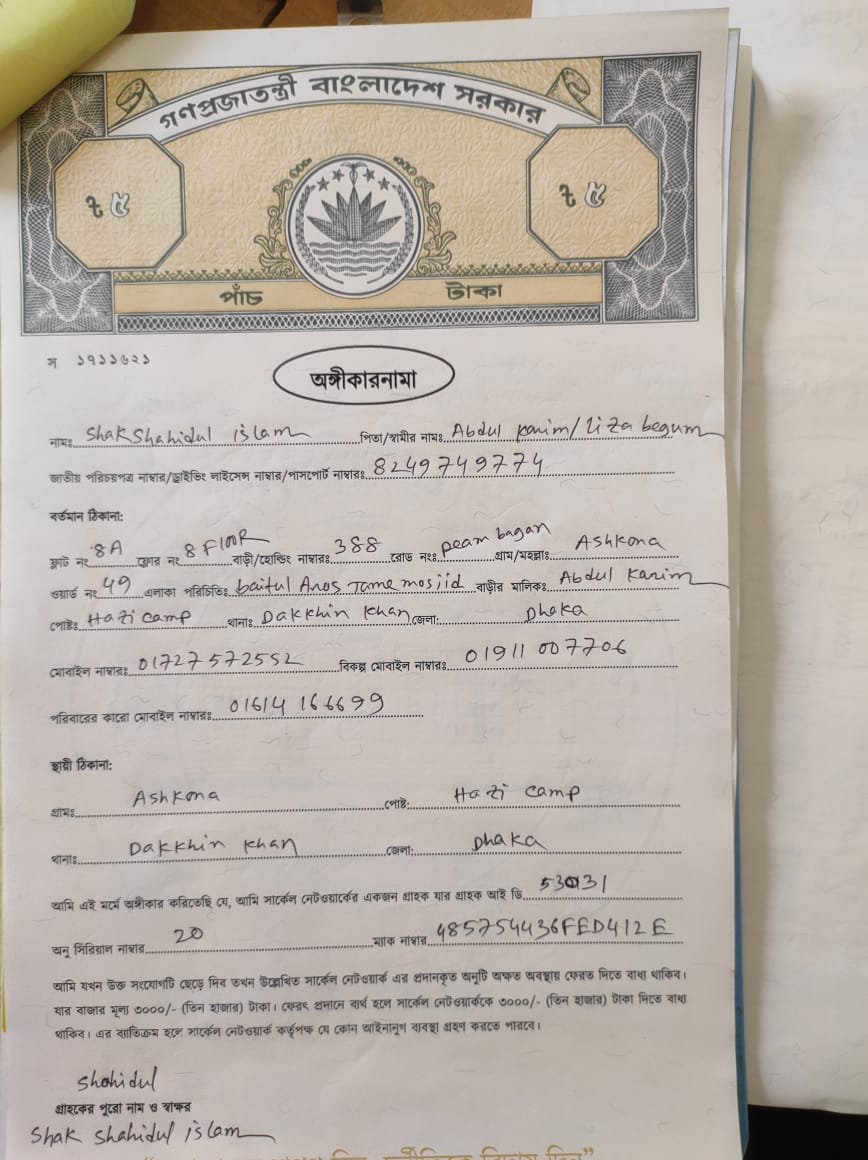 গণপ্রজাতন্ত্রী বাংলাদেশ সরকার
৳ ৫ ৳ ৫
পাঁচ টাকা
স ১৭১১৬২১
অঙ্গীকারনামা
নামঃ Shak Shahidul islam পিতা/স্বামীর নামঃ Abdul Karim/Liza begum
জাতীয় পরিচয়পত্র নাম্বার/ড্রাইভিং লাইসেন্স নাম্বার/পাসপোর্ট নাম্বারঃ 8249749774
বর্তমান ঠিকানা:
ফ্লাট নং 8A ফ্লোর নং 8 Floor বাড়ী/হোল্ডিং নাম্বারঃ 388 রোড নংঃ peam bagan গ্রাম/মহল্লাঃ Ashkona
ওয়ার্ড নং 49 এলাকা পরিচিতিঃ baitul Anos Jame mosjid বাড়ীর মালিকঃ Abdul Karim
পোষ্টঃ Hazi camp থানাঃ Dakkhin Khan জেলা: Dhaka
মোবাইল নাম্বারঃ 01727572552 বিকল্প মোবাইল নাম্বারঃ 01911 007706
পরিবারের কারো মোবাইল নাম্বারঃ 01614 166699
স্থায়ী ঠিকানা:
গ্রামঃ Ashkona পোষ্ট: Hazi camp
থানাঃ Dakkhin Khan জেলা: Dhaka
আমি এই মর্মে অঙ্গীকার করিতেছি যে, আমি সার্কেল নেটওয়ার্কের একজন গ্রাহক যার গ্রাহক আই ডি
অনু সিরিয়াল নাম্বার 20 ম্যাক নাম্বার 485754436FED412E
আমি যখন উক্ত সংযোগটি ছেড়ে দিব তখন উল্লেখিত সার্কেল নেটওয়ার্ক এর প্রদানকৃত অনুটি অক্ষত অবস্থায় ফেরত দিতে বাধ্য থাকিব।
যার বাজার মূল্য ৩০০০/- (তিন হাজার) টাকা। ফেরৎ প্রদানে ব্যর্থ হলে সার্কেল নেটওয়ার্ককে ৩০০০/- (তিন হাজার) টাকা দিতে বাধ্য
থাকিব। এর ব্যতিক্রম হলে সার্কেল নেটওয়ার্ক কর্তৃপক্ষ যে কোন আইনানুগ ব্যবস্থা গ্রহণ করতে পারবে।
Shahidul
গ্রাহকের পুরো নাম ও স্বাক্ষর
Shak Shahidul islam